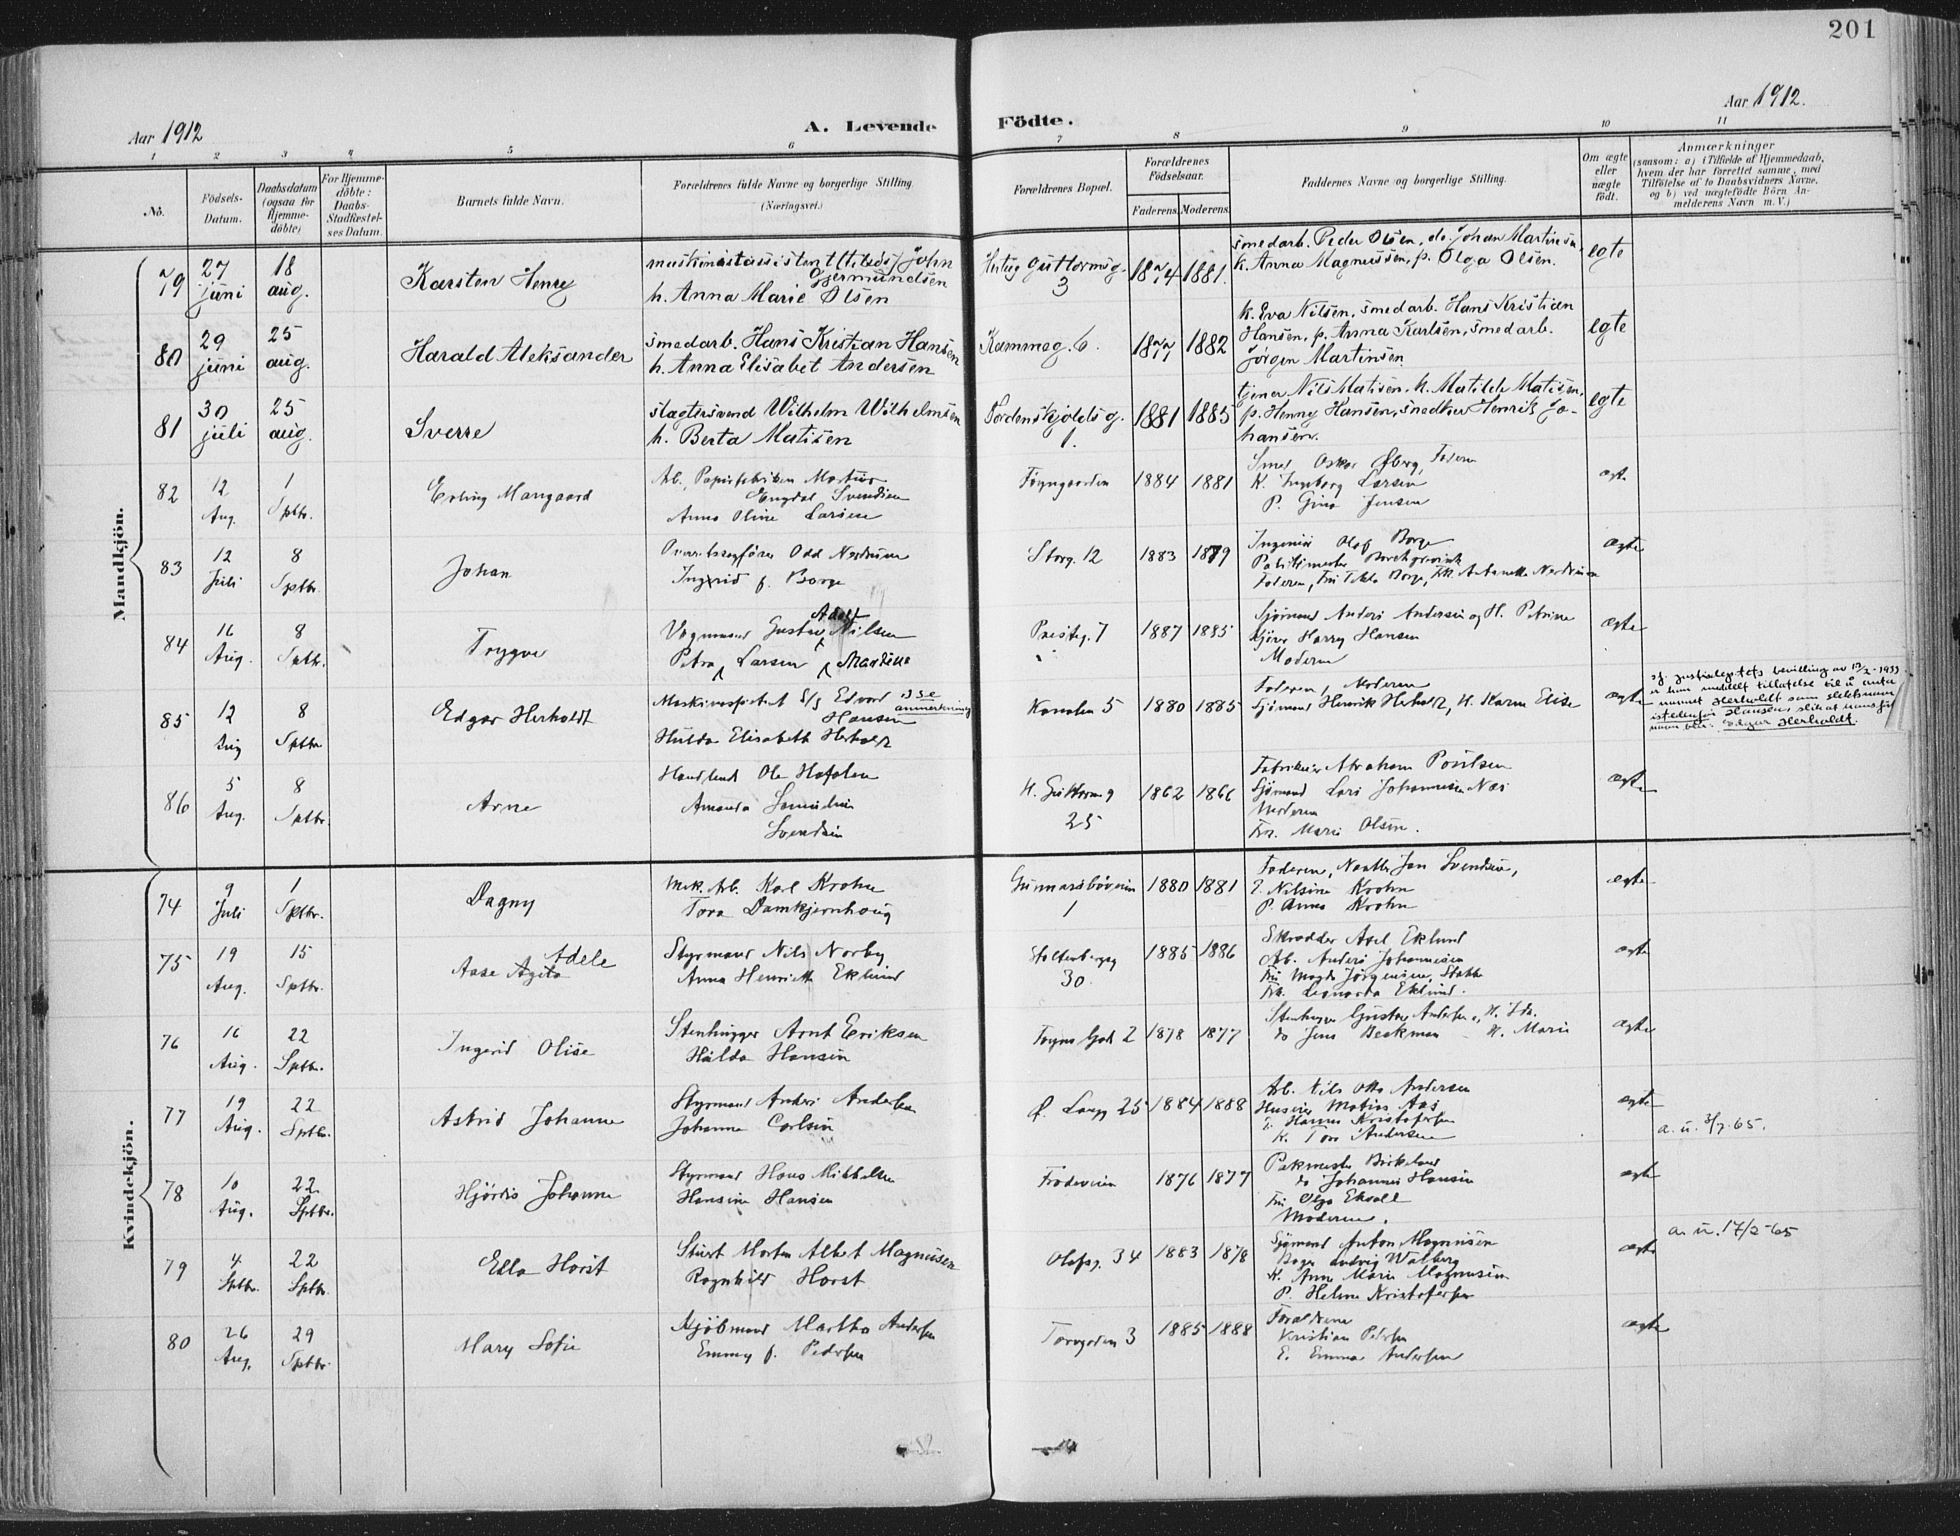 201
Aar 1912
A. Levende
Födte.
Aar 1912.
1 2 3 4 5 6 7 8 9 10 11
No.
Födsels-
Datum.
Daabsdatum
(ogsaa for
Hjemme-
döbte)
For Hjemme-
döbte:
Daabs-
Stadfæstel-
ses Datum.
Barnets fulde Navn.
Forældrenes fulde Navne og borgerlige Stilling.
(Næringsvei.)
Forældrenes Bopæl.
Forældrenes
Födselsaar.
Faderens. Moderens.
Faddernes Navne og borgerlige Stilling.
Om ægte
eller
uægte
födt.
Anmærkninger
(saasom: a) i Tilfælde af Hjemmedaab,
hvem der har forrettet samme, med
Tilföielse af to Daabsvidners Navne,
og b) ved uægtefödte Börn An-
melderens Navn m. V.)
Mandkjön.
79
27
juni
18
aug.
Karsten Henry
maskinistassistent John
Gjermundsen
h. Anna Marie Olsen
Hertug Guttormsg.
3
1881.
smedarb. Peder Olsen, do. Johan Martinsen,
k. Anna Magnussen, p. Olga Olsen.
egte
80
29
juni
25
aug.
Harald Aleksander
smedarb. Hans Kristian Hansen
h. Anna Elisabet Andersen
Kammeg. 6.
1882
k. Eva Nilsen, smedarb. Hans Kristian
Hansen, p. Anna Karlsen, smedarb.
Jörgen Martinsen.
egte
81
30
juli
25
aug.
Sverre
slagtersvend Wilhelm Wilhelmsen
h. Berta Matisen
Tordenskjolds g.
1.
1881 1885
tjener Nils Matisen, h. Matilde Matisen,
p. Henny Hansen, Henrik Jo-
hansen.
egte
82
12
Aug.
1
Sptbr.
Erling Mangaard
Arb. Papirfabriken
Engdal Svendsen
Anna Oline Larsen
Föyngaarden
1884 1881
Smed Oskar Öberg, Faderen
K. Ingeborg Larsen
P. Gina Jensen
ægte
83
12
Juli
8
Sptbr.
Johan
Odd Nerdrum
Ingrid f. Borge
Storg. 12
1883 1879
Ingeniör Olaf Borge
Politimester
Faderen, Fru Borge, Frk. Nerdrum
ægte
84
16
Aug.
8
Sptbr.
Trygve
Adolf
Vognmand Gustav Nilsen
Petra Larsen Martine
Præsteg. 7
1887 1885
Sjömand Anders Andersen og H. Petrine
Harry Hansen
Moderen
ægte
85
12
Aug
8
Sptbr
Edgar Herholdt
Edvard se
anmerkning
Hansen
Hulda Elisabeth Herholdt
Kanalen 5
1880 1885
Faderen, Moderen
Sjömand Henrik Herholdt, H. Karen Elise
ægte
af justisdeptets bevilling av 13/2-1933
er han meddelt tillatelse til å anta
navnet Herholdt som slektsnavn
istedenfor Hansen, slik at hans fulde
navn blir: Edgar Herholdt.
86
5
Aug.
8
Sptbr.
Arne
Ole Hafalen
Amanda
Svendsen
H. Guttormsg
25
1862 1866
Fabrikeier Abraham Poulsen
Sjömand Lars Johannesen Næs
Moderen
Frk. Marie Olsen.
ægte
Kvindekjön.
74
9
Juli
1
Sptbr.
Dagny
Mek. Arb. Karl Krohn
Tora Damkjernhoug
Gunnarsböveien
1
1880 1881
Faderen, Jan Svendsen,
E. Nilsine Krohn
P. Anna Krohn
ægte
75
19
Aug.
15
Sptbr.
Adele
Aase Agita
Styrmand Nils Norby
Anna Henriette Eklund
Stoltenbergsg
30
1885 1886
Skrædder Axel Eklund
Arb. Anders Johannesen
Fru Magda Jörgensen,
Frk. Leonarda Eklund.
ægte
76
16
Aug.
22
Sptbr.
Ingerid Olise
Stenhugger Arnt Eriksen
Hulda Hansen
Föyns Gad 2
1878 1877
Stenhugger Gustav Andersen, H. Ida
do Jens Beckman H. Marie
ægte
77
19
Aug.
22
Sptbr.
Astrid Johanne
Styrmand Anders Andersen
Johanne Carlsen
Ø. Langg 25
1884 1888
Arb. Nils Otto Andersen
Huseier Matias Aas
E. Hanna Kristofersen
K. Tora Andersen
ægte
a. u. 3/7-65.
78
10
Aug.
22
Sptbr.
Hjördis Johanne
Styrmand Hans Mikkelsen
Hansine Hansen
Frodeveien
1876 1877
Pakmester Birkeland
do Johannes Hansen
Fru Olga Eksall
Moderen.
ægte
79
4
Sptbr.
22
Sptbr
Ella Horst
Morten Albert Magnussen
Ragnhild Horst
Olafsg. 34
1883 1878
Sjömand Anton Magnussen
Bager Ludvig Walberg
K. Anne Marie Magnussen
P. Helene Kristofersen
ægte
a. u. 17/2-65
80
26
Aug.
29
Sptbr.
Mary Sofie
Kjöbmand Martho Andersen
Emmy f. Pedersen
Torvgaden 3
1885 1888
Forældrene
Kristian Petersen
E. Emma Andersen
ægte